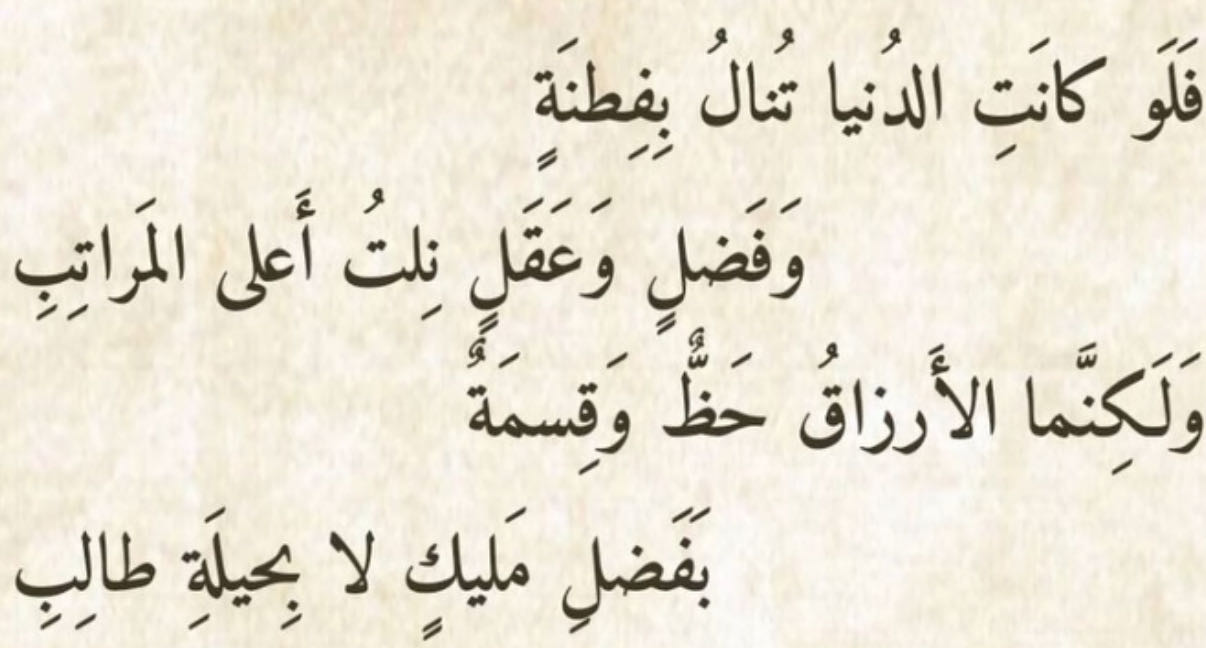 فَلَو كانَتِ الدُنيا تُنالُ بِفِطنَةٍ
وَفَضلٍ وَعَقَلٍ نِلتُ أَعلى المَراتِبِ
وَلَكِنَّما الأَرزاقُ حَظٌّ وَقِسمَةٌ
بَفَضلِ مَليكٍ لا بِحيلَةِ طالِبِ